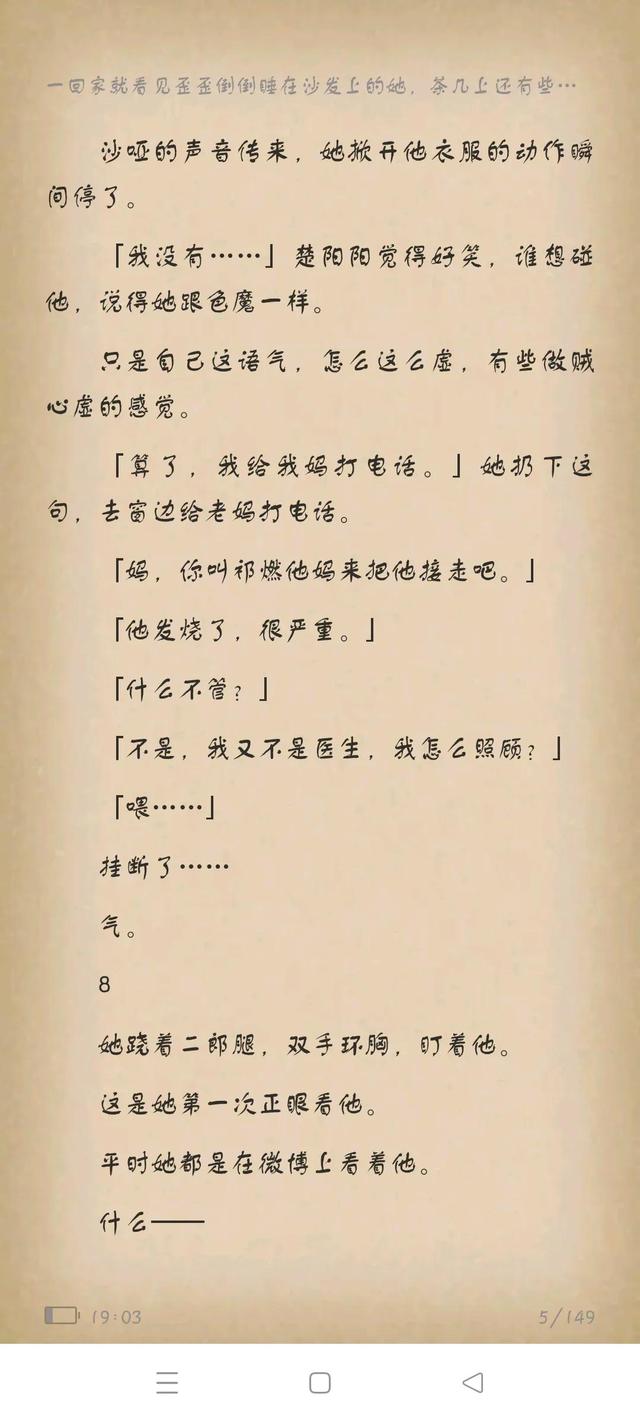 一回家就看见歪歪倒倒睡在沙发上的她，茶几上还有些…
沙哑的声音传来，她掀开他衣服的动作瞬
间停了。
「我没有……」楚阳阳觉得好笑，谁想碰
他，说得她跟色魔一样。
只是自己这语气，怎么这么虚，有些做贼
心虚的感觉。
「算了，我给我妈打电话。」她扔下这
句，去窗边给老妈打电话。
「妈，你叫祁燃他妈来把他接走吧。」
「他发烧了，很严重。」
「什么不管？」
「不是，我又不是医生，我怎么照顾？」
「喂……」
挂断了……
气。
8
她跷着二郎腿，双手环胸，盯着他。
这是她第一次正眼看他。
平时她都是在微博上看着他。
什么——
19:03
5/149